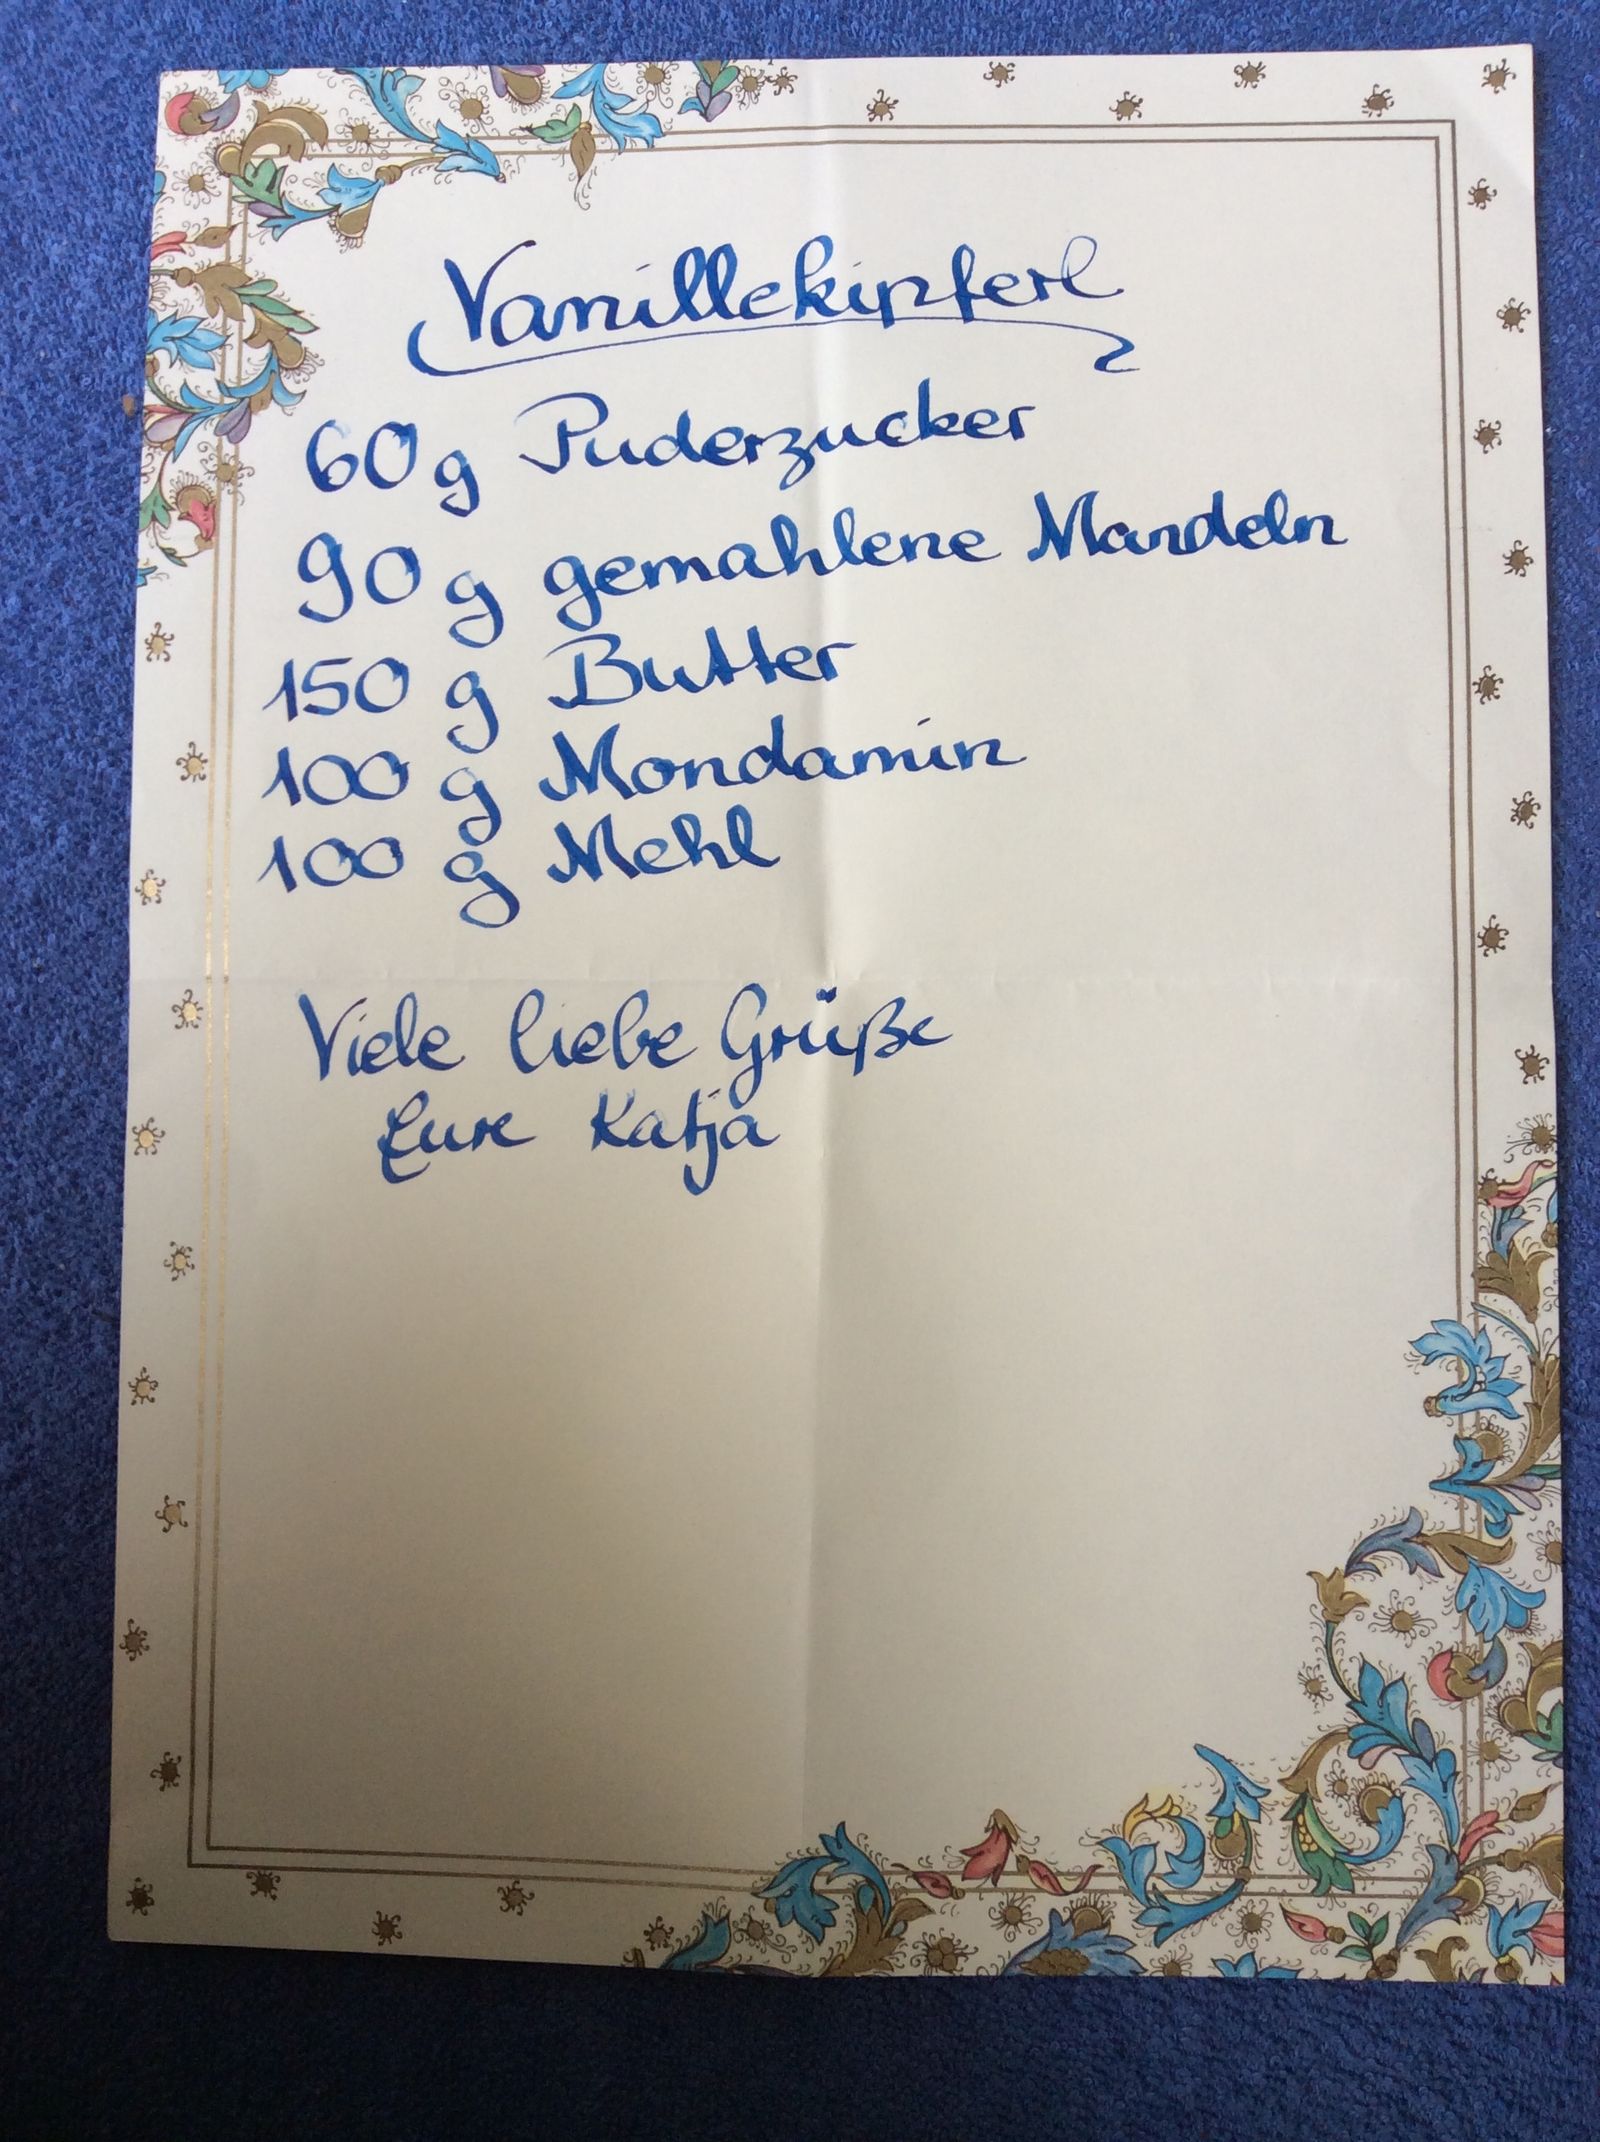 Vanillekipferl
60 g Puderzucker
90 g gemahlene Mandeln
150 g Butter
100 g Mondamin
100 g Mehl
Viele liebe Grüße
Eure Katja